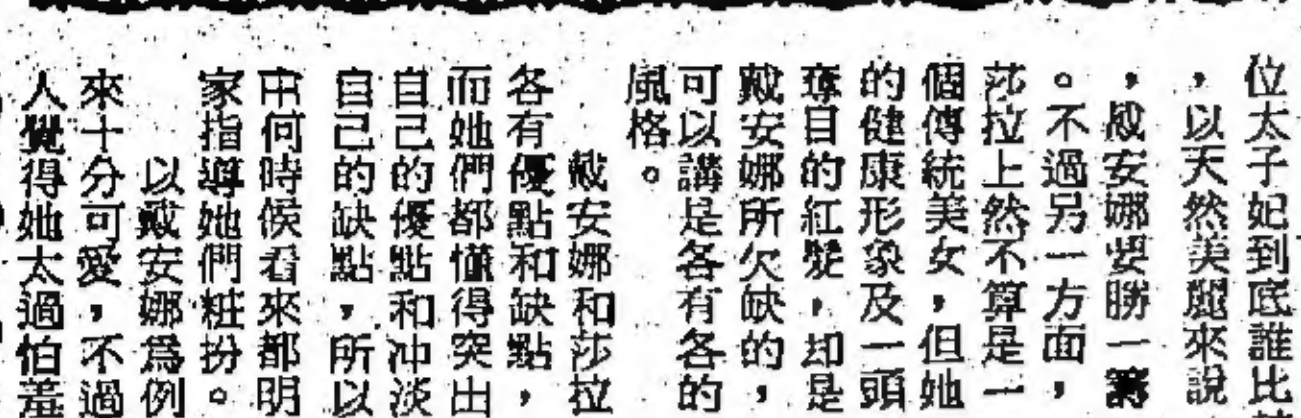 位太子妃到底誰比
，以天然美麗來說
，戴安娜要勝一籌
。不過另一方面，
莎拉上然不算是一
個傳統美女，但她
的健康形象及一頭
奪目的紅髮，却是
戴安娜所欠缺的，
可以講是各有各的
風格。
戴安娜和莎拉
各有優點和缺點，
而她們都懂得突出
自己的優點和冲淡
自己的缺點，所以
何時候看來都明
家指導她們粧扮。
以戴安娜爲例
來十分可愛，不過
人覺得她太過怕羞